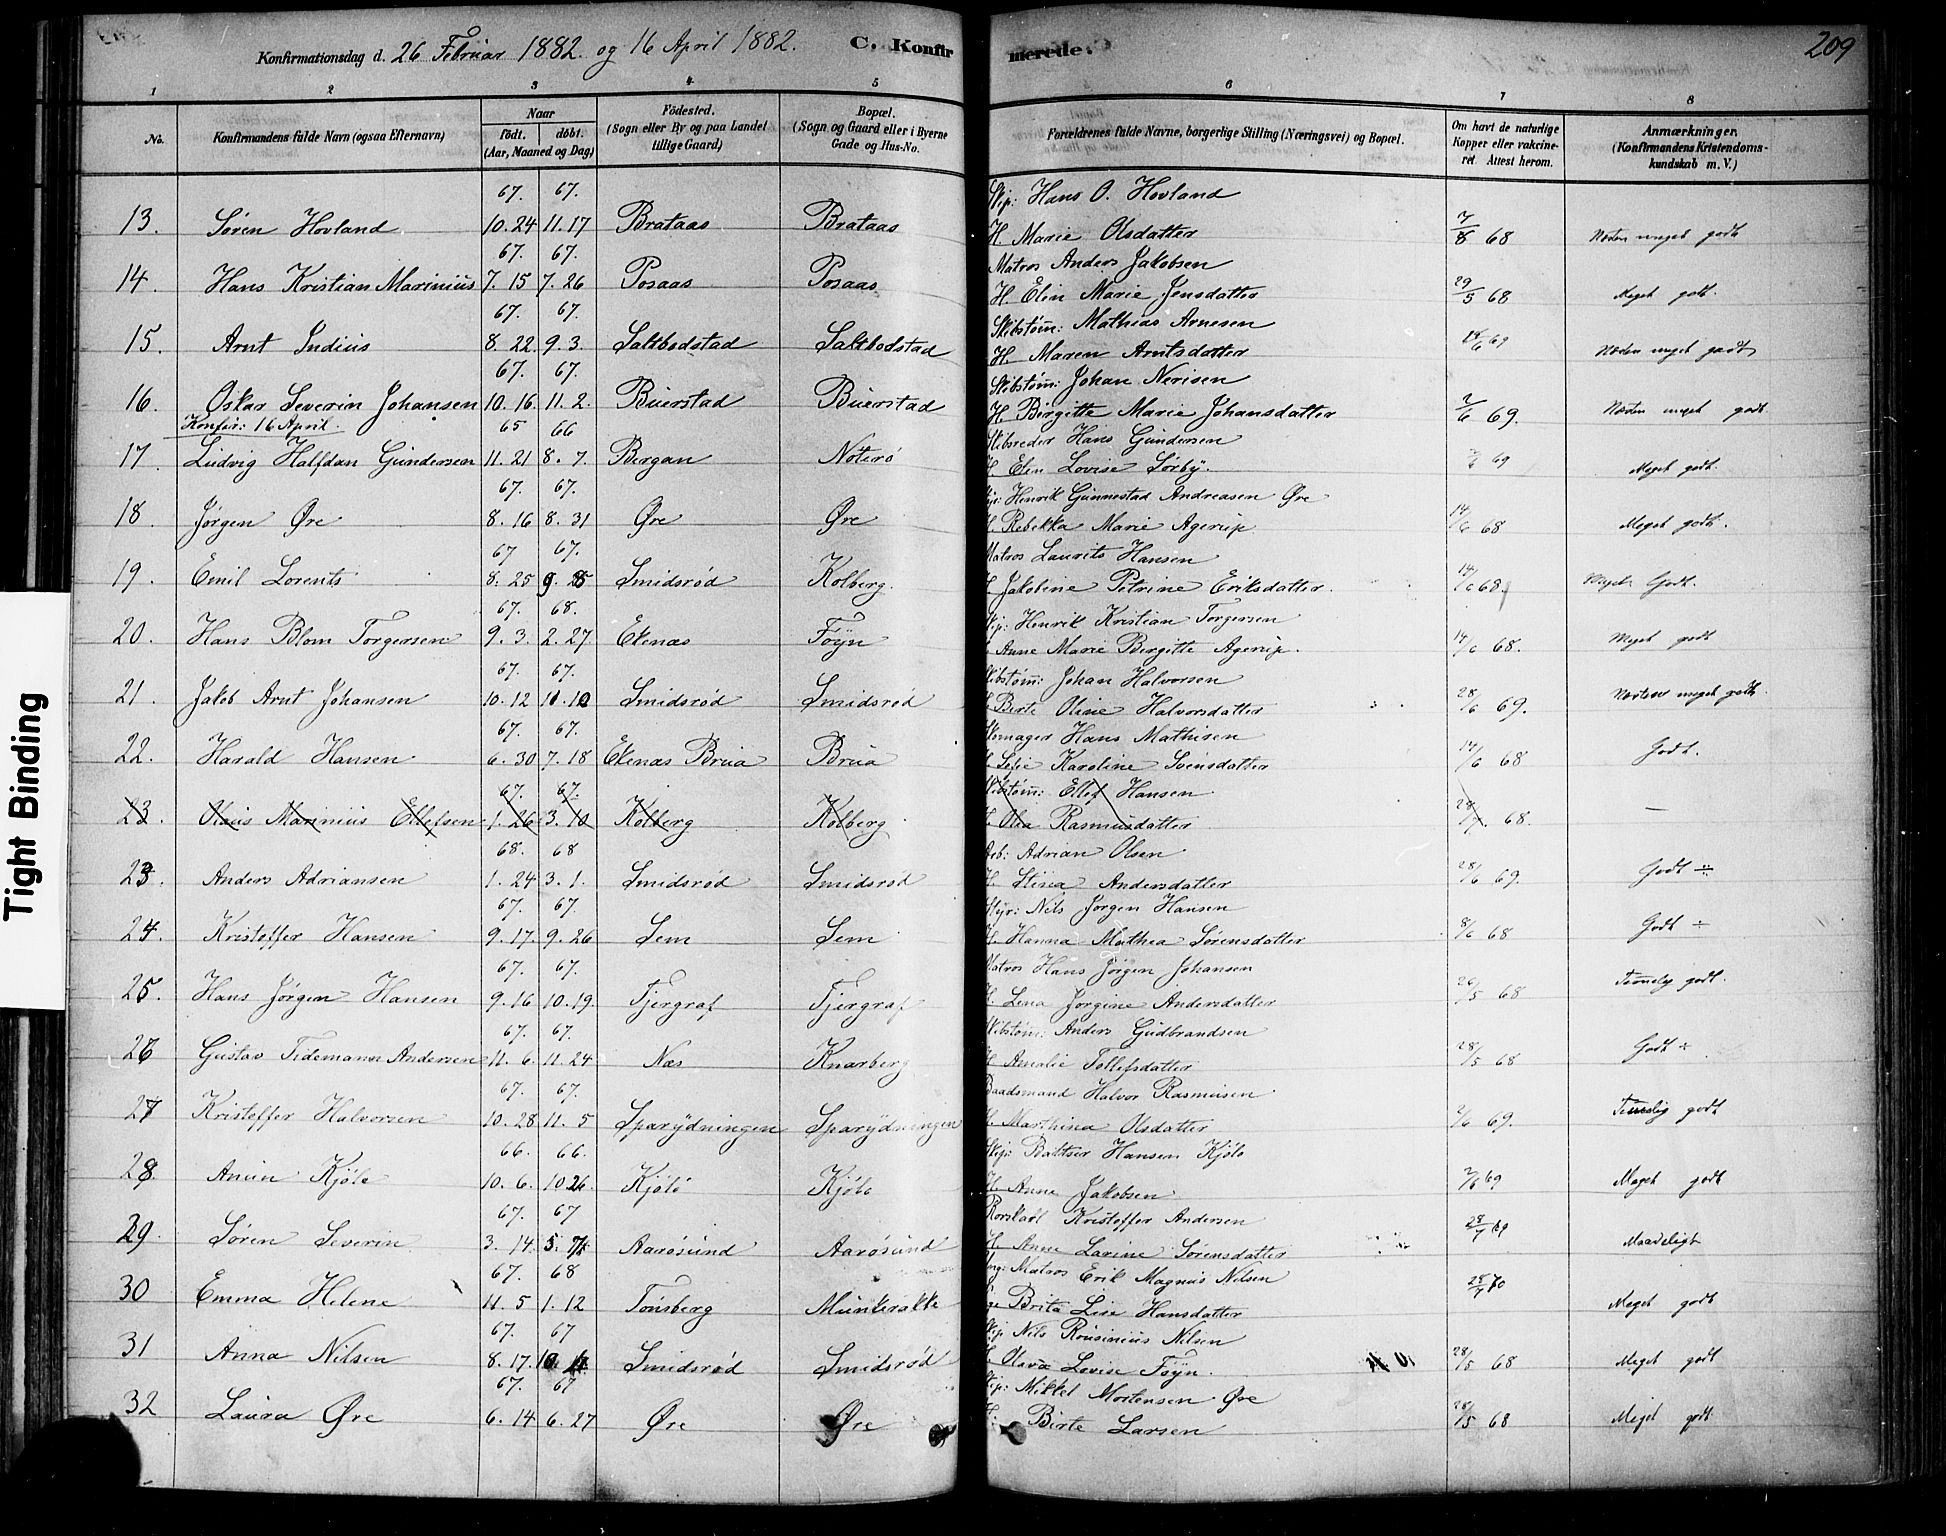 Konfirmationsdag d. 26 Februar 1882. og 16 April 1882. C. Konfir merede. 209
1 2 3 4 5 6 7 8
No. Konfirmandens fulde Navn (ogsaa Efternavn) Naar födt. döbt. (Aar, Maaned og Dag) Födested. (Sogn eller By og paa Landet tillige Gaard) Bopæl. (Sogn og Gaard eller i Byerne Gade og Hus-No. Forældrenes fulde Navne, borgerlige Stilling (Næringsvei) og Bopæl. Om havt de naturlige Kopper eller vakcineret Attest herom. Anmærkninger. (Konfirmandens Kristendomskundskab m. V.)
67. 67. Skip: Hans O. Hovland
13. Søren Hovland 10. 24 11. 17 Brataas Brataas H. Marie Olsdatter 7/8 68 Næsten meget godt
67. 67. Matros Anders Jakobsen
14. Hans Kristian Marinius 7. 15 7. 26 Posaas Posaas H. Elin Marie Jensdatter 29/5 68 Meget godt.
67. 67. Skibstøm: Mathias Arnesen
15. Arnt Indius 8. 22. 9. 3. Saltbodstad Saltbodstad H. Maren Arntsdatter 69 Næsten meget godt
67. 67. Skibstøm: Johan Nerisen
16. Oskar Severin Johansen 10. 16. 11. 2. Buerstad Buerstad H. Birgitte Marie Johansdatter 2/6 69. Næsten meget godt.
Konfir: 16 April. 65 66 Skibsreder Hans Gundersen
17. Ludvig Halfdan Gundersen 11. 21 8. 7. Bergan Nøterø H. Elen Lovise Sørby. 69 Meget godt.
67. 67. Henrik Gunnestad Andreasen Øre
18. Jørgen Øre 8. 16 8. 31 Øre Øre H. Rebekka Marie Agerup 14/6 68 Meget godt.
67 67. Matros Laurits Hansen
19. Emil Lorents 8. 25 9. Smidsrød Kolberg. H. Jakobine Petrine Eriksdatter. 14/6 68. Meget Godt.
67. 68. Skip: Henrik Kristian Torgersen
20. Hans Blom Torgersen 9. 3. 2. 27. Ekenæs Føyn Anne Marie Birgitte Agerup. 14/6 68. Meget godt
67. 67. Skibstøm: Johan Halvorsen
21. Jakob Arnt Johansen 10. 12 Smidsrød Smidsrød Birte Oline Halvorsdatter 28/6 69. Næsten meget godt.
67. 67. Skomager Hans Mathisen
22. Harald Hansen 6. 30 7. 18 Ekenæs Brua Brua Karoline Svensdatter 14/6 68 Godt.
67. 67. Skibstøm: Ellef Hansen
23. Olaus Marinius Ellefsen 1. 26 3. 10 Kolberg Kolberg Rasmusdatter 28/7. 68. —
68. 68 Arb: Adrian Olsen
23. Anders Adriansen 1. 24 3. 1. Smidsrød Smidsrød H. Stina Andersdatter 28/6 69. Godt ÷
67. 67. Styr: Nils Jørgen Hansen
24. Kristoffer Hansen 9. 17. 9. 26 Sem Sem H. Hanna Mathea Sørensdatter 8/6 68 Godt ÷
67. 67. Matros Hans Jørgen Johansen
25. Hans Jørgen Hansen 9. 16 10. 19. Tjergraf Tjergraf H. Lena Jørgine Andersdatter 26/5 68 Temmelig godt.
67. 67. Skibstøm: Anders Gudbrandsen
26 Gustav Tidemann Andersen 11. 6. 11. 24 Næs Knarberg H. Amalie Tollefsdatter 28/5 68 Godt ÷
67. 67. Baadsmand Halvor Rasmusen
27 Kristoffer Halvorsen 10. 28 11. 5 Sparydningen Sparydningen H. Marthina Olsdatter 2/6 69. Temmelig godt
66. 66. Skip: Baltser Hansen Kjølø
28. Kjølø 10. 6. 10 26. Kjølø Kjølø H. Anne Jakobsen 69 Meget godt
67. 67 Kristoffer Andersen
29. Søren Severin 3. 14. 5. Aarøsund Aarøsund H. Anne Larine Sørensdatter 28/7 Maadeligt
67. 68 Matros Erik Magnus Nilsen
30 Emma Helene 11. 5 1. 12 Tønsberg Munkerakke Brita Lise Hansdatter 28/7 70 Meget godt
67. 67 Skip Nils Rousinius Nilsen
31 Anna Nilsen 8. 17. Smidsrød Smidsrød Olava Lovise Føyn. 28/5 68 Meget godt
67. 67 Skip: Mikkel Mortensen Øre
32 Laura Øre 6. 14 6. 27 Øre Øre H. Birte Larsen 28/5 68 Meget godt
Tight Binding